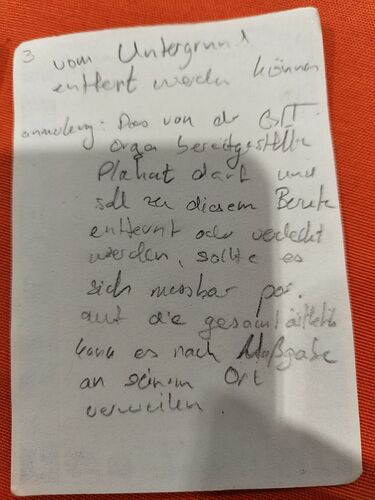 3 vom Untergrund
entfert werden können
anmerkung: Das von der
Orga bereitgestellte
Plakat darf und
soll zu diesem
entfernt oder verdeckt
werden, sollte es
sich messbar pos.
auf die gesamtästhetik
kann es nach Maßgabe
an seinem Ort
verweilen.